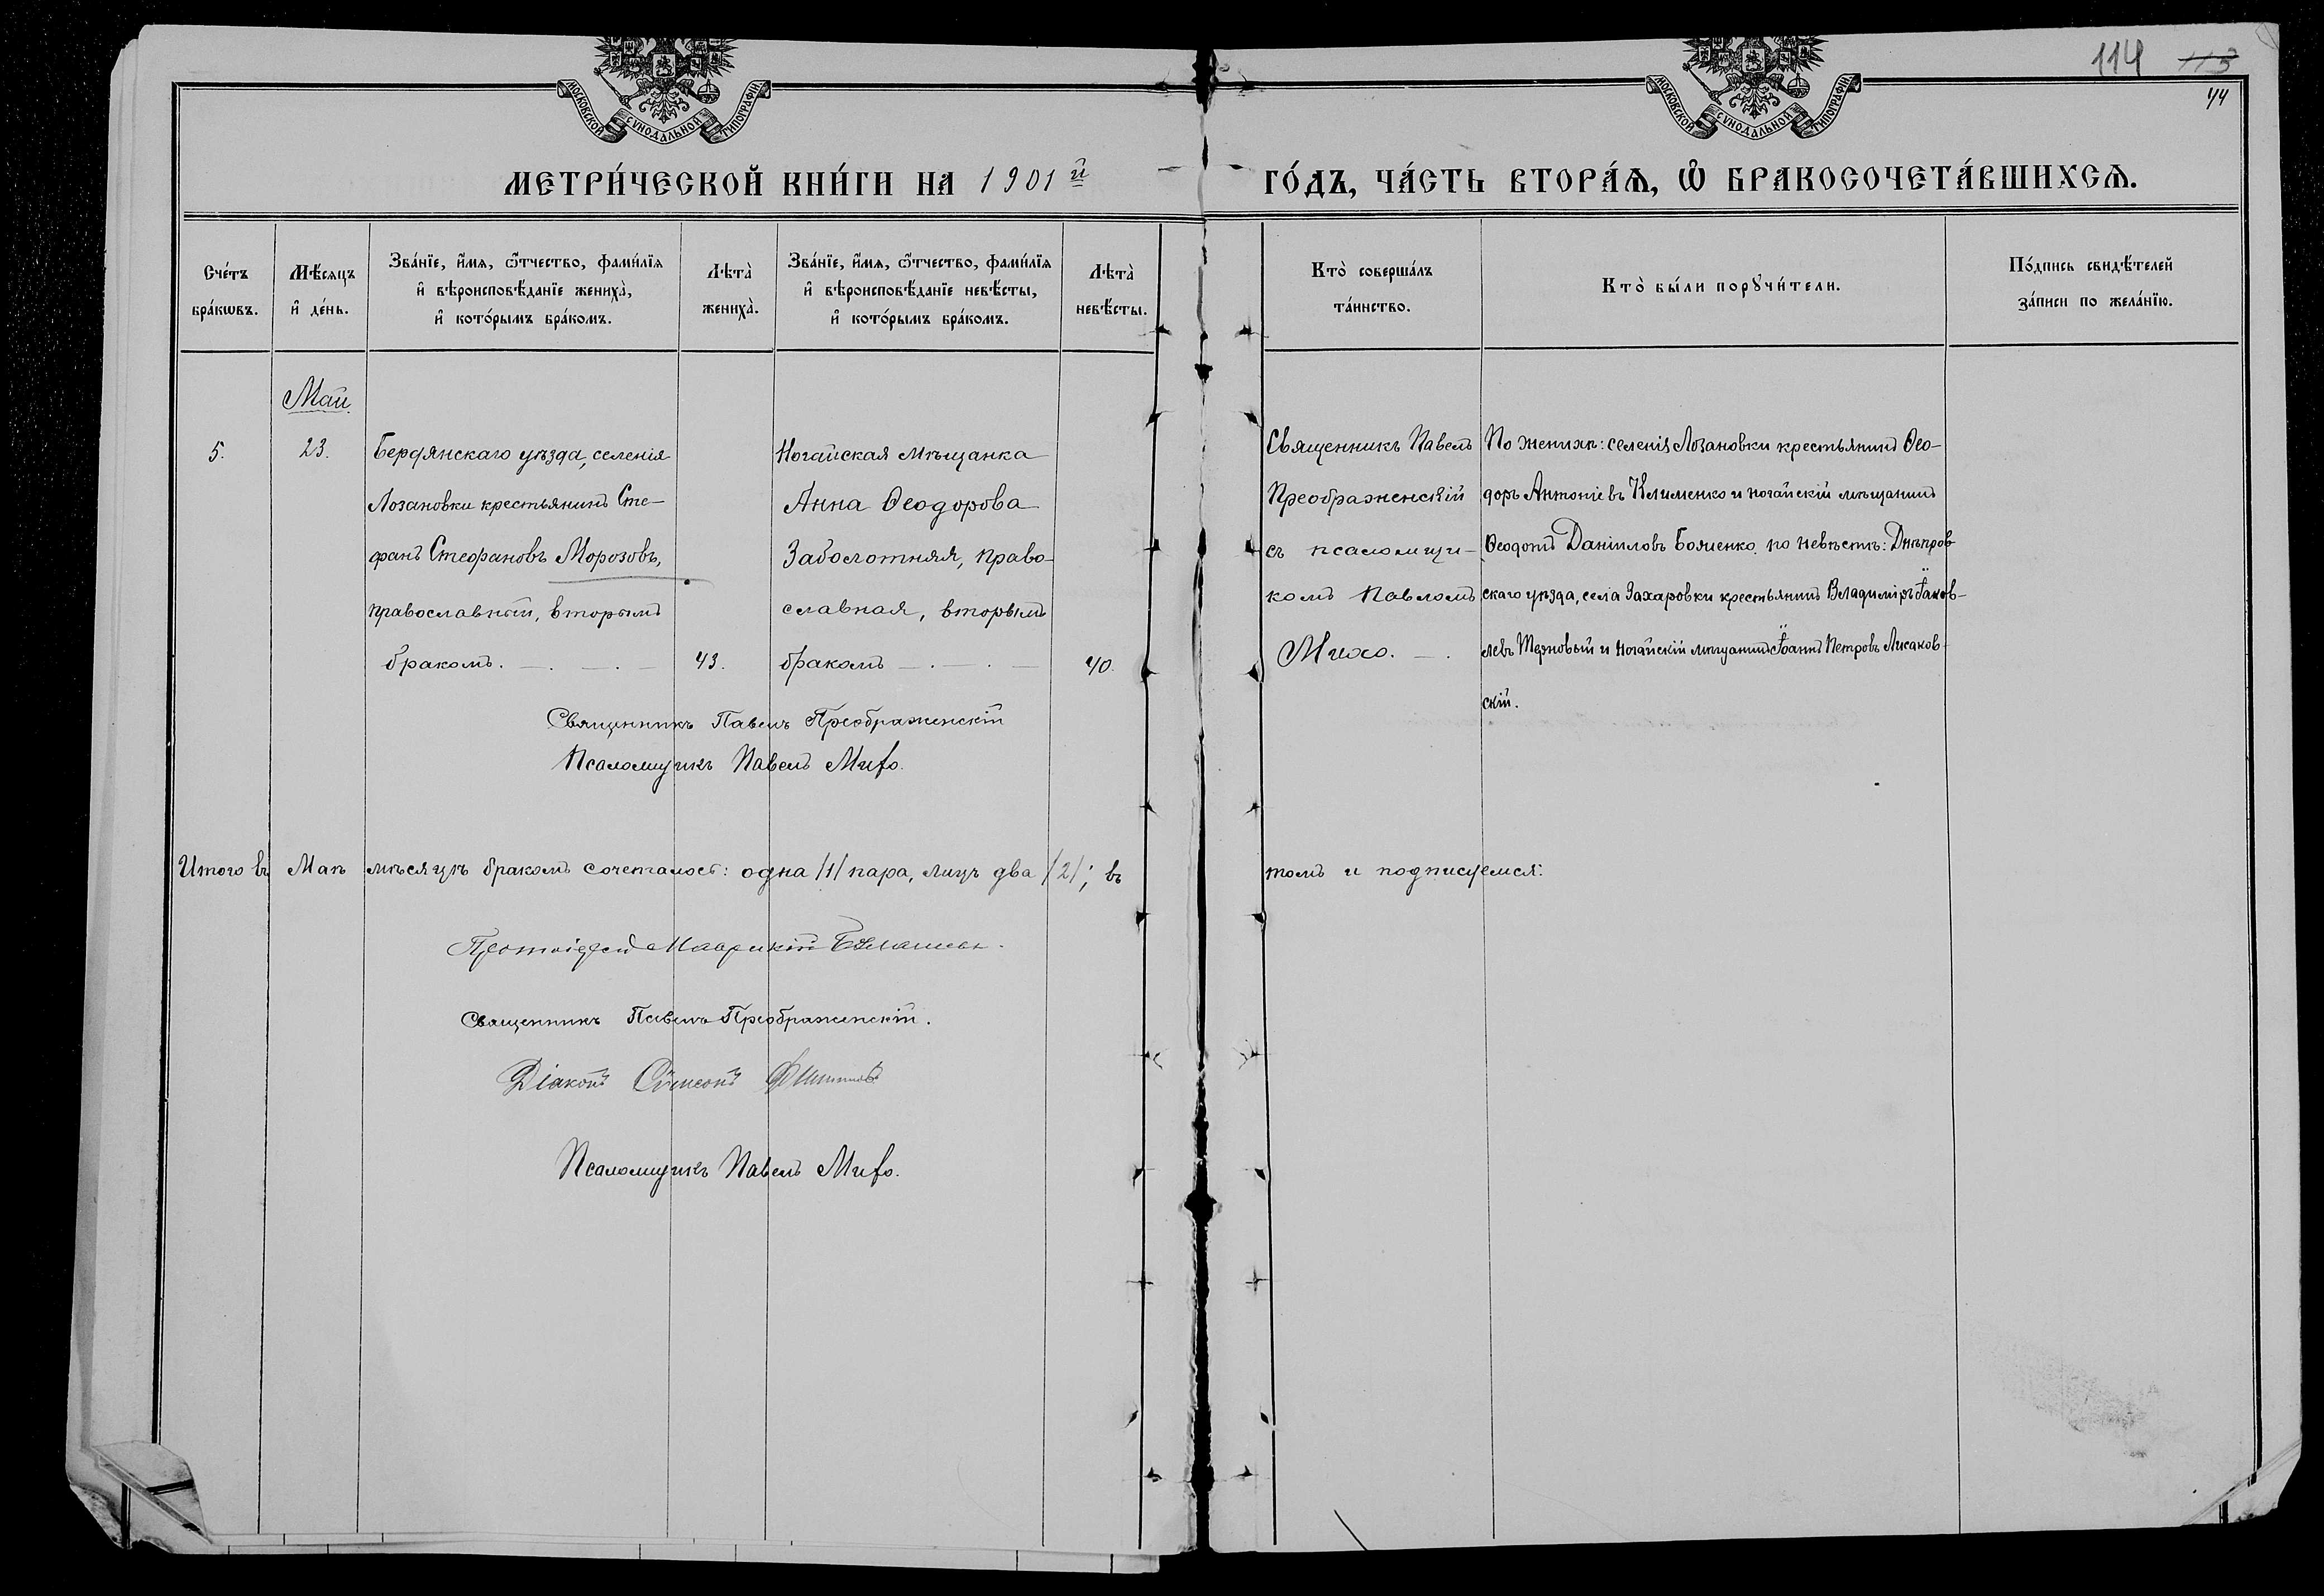 МОСКОВСКОЙ СѴНОДАЛЬНОЙ ТИПОГРАФІИ
МОСКОВСКОЙ СѴНОДАЛЬНОЙ ТИПОГРАФІИ
114 113
44
МЕТРИ́ЧЕСКОЙ КНИ́ГИ НА 1901й ГО́ДЪ, ЧА́СТЬ ВТОРА́Ѧ, Ѽ БРАКОСОЧЕТА́ВШИХСѦ.
Сче́тъ
бра́кѡвъ.
Мѣ́сяцъ
и҆ де́нь.
Зва́нїе, и҆́мѧ, ѻ҆́тчество, фами́лїѧ
и҆ вѣроисповѣ́данїе жениха̀,
и҆ кото́рымъ бра́комъ.
Лѣта̀
жениха̀.
Зва́нїе, и҆́мѧ, ѻ҆́тчество, фами́лїѧ
и҆ вѣроисповѣ́данїе невѣ́сты,
и҆ кото́рымъ бра́комъ.
Лѣта̀
невѣ́сты.
Кто̀ соверша́лъ
та́инство.
Кто̀ бы́ли порꙋчи́тели.
По́дпись свидѣ́телей
за́писи по жела́нїю.
Май.
5.
23.
Бердянскаго уѣзда, селенія
Лозановки крестьянинъ Сте-
фанъ Стефановъ Морозовъ,
православный, вторымъ
бракомъ. — . — . —
43.
Ногайская мѣщанка
Анна Ѳеодорова
Заболотняя, право-
славная, вторымъ
бракомъ — . — . —
40.
Священникъ Павелъ
Преображенскій
съ псаломщи-
комъ Павломъ
Михо. — .
По женихѣ: селенія Лозановки крестьянинъ Ѳео-
доръ Антоніевъ Клименко и ногайскій мѣщанинъ
Ѳеодотъ Даніиловъ Бойченко, по невѣстѣ: Днѣпров-
скаго уѣзда, села Захаровки крестьянинъ Владиміръ Іаков-
левъ Терновый и ногайскій мѣщанинъ Іоаннъ Петровъ Лисаков-
скій.
Священникъ Павелъ Преображенскій
Псаломщикъ Павелъ Михо.
Итого въ Маѣ мѣсяцѣ бракомъ сочеталось: одна /1/ пара, лицъ два /2/; въ томъ и подписуемся:
Протоіерей Маврикій
Священникъ Павелъ Преображенскій.
Діаконъ Сѵмеонъ
Псаломщикъ Павелъ Михо.